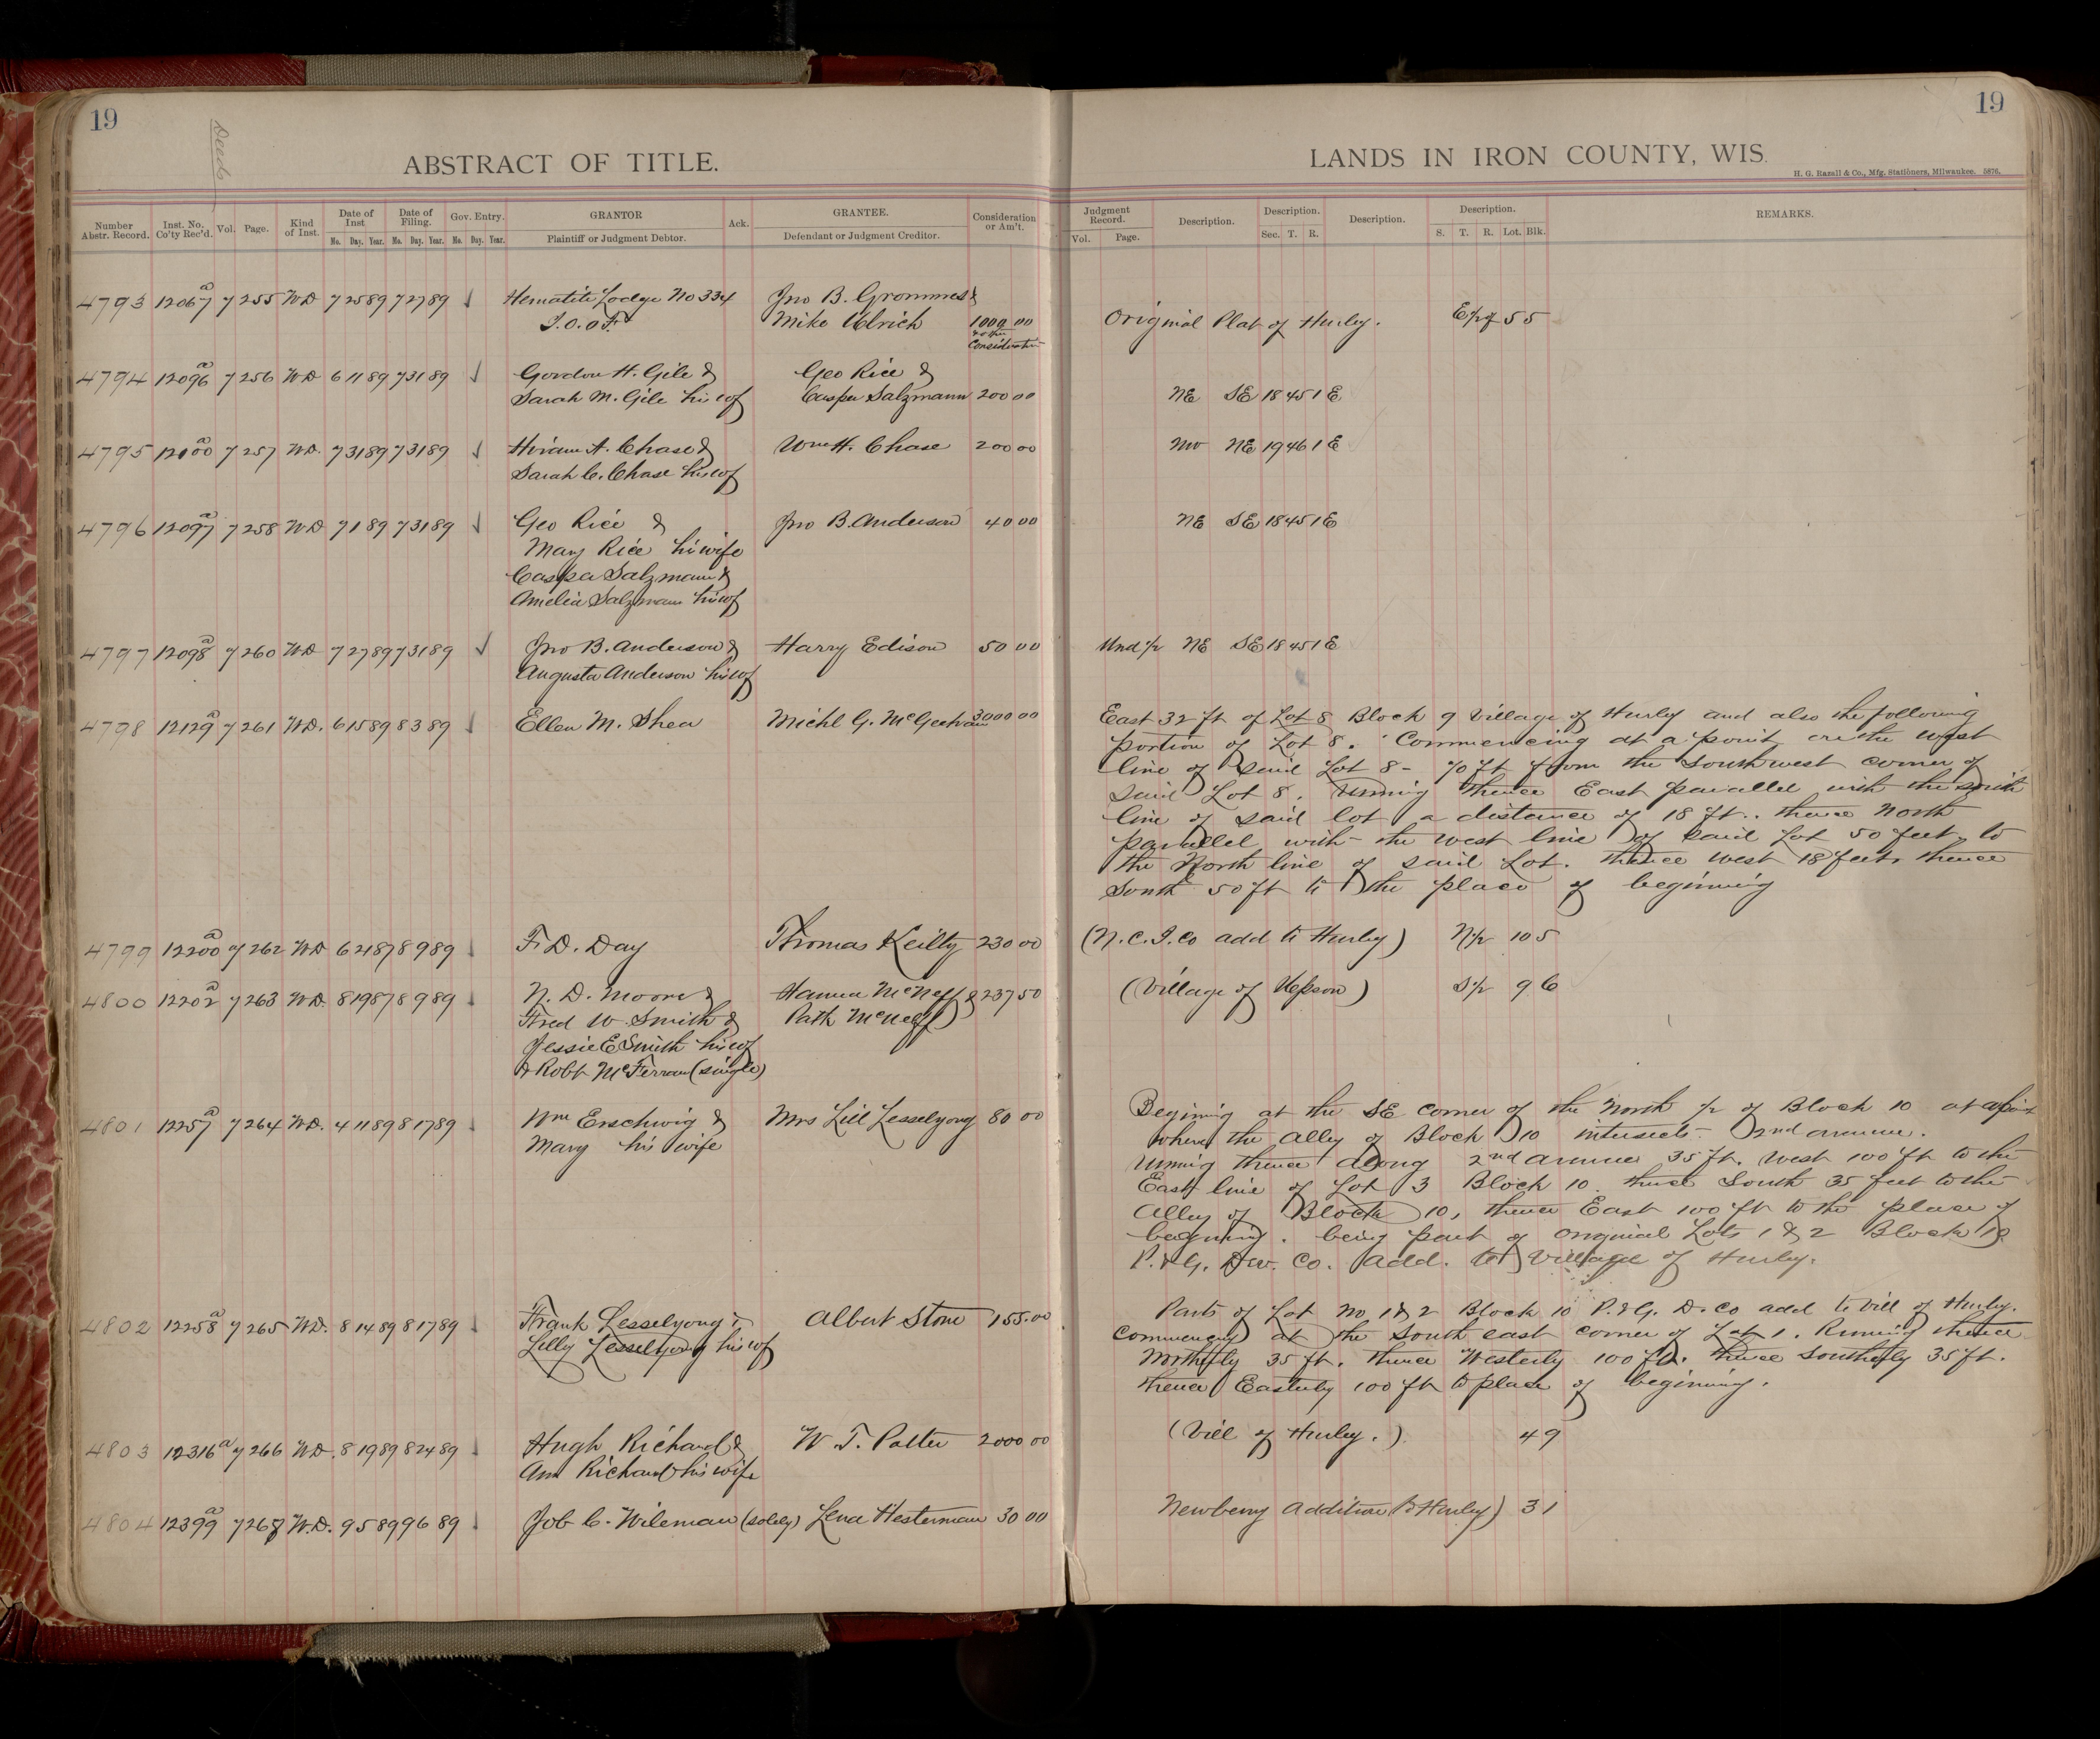 19
Deeds
ABSTRACT OF TITLE.
Number Abstr. Record. Inst. No. Co'ty Rec'd. Vol. Page. Kind of Inst. Date of Inst Date of Filing. Gov. Entry. GRANTOR Ack. GRANTEE. Consideration or Am't.
Mo. Day. Year. Mo. Day. Year. Mo. Day. Year. Plaintiff or Judgment Debtor. Defendant or Judgment Creditor.
4793 12067 a 7 255 WD 7 25 89 7 27 89 Hematite Lodge No 334 Jno B. Grommes &
I.O.O.F. Mike Ulrich 1000 00
& other
Consideration
4794 12096 a 7 256 WD 6 11 89 7 31 89 Gordon H. Gile & Geo Rice &
Sarah M. Gile his wf Casper Salzmann 200 00
4795 12100 a 7 257 WD. 7 31 89 7 31 89 Hiram A. Chase & Wm H. Chase 200 00
Sarah C. Chase his wf
4796 12097 a 7 258 WD 7 1 89 7 31 89 Geo Rice & Jno B. Anderson 40 00
Mary Rice his wife
Caspa Salzmann &
Amelia Salzmann his wf
4797 12098 a 7 260 WD 7 27 89 7 31 89 Jno B. Anderson & Harry Edison 50 00
Augusta Anderson his wf
4798 12129 a 7 261 WD. 6 15 89 8 3 89 Ellen M. Shea Michl G. McGeehan 3000 00
4799 12200 a 7 262 WD 6 21 87 8 9 89 F. D. Day Thomas Keilty 230 00
4800 12202 a 7 263 WD. 8 19 87 8 9 89 N. D. Moore & Hanna McNeff & 237 50
Fred W. Smith & Patk McNeff
Jessie E Smith his wf
& Robt McFerran (single)
4801 12257 a 7 264 WD. 4 11 89 8 17 89 Wm Erschwig & Mrs Lill Lesselyong 80 00
Mary his wife
4802 12258 a 7 265 WD. 8 14 89 8 17 89 Frank Lesselyong & Albert Stone 155.00
Lilly Lesselyong his wf
4803 12316 a 7 266 WD. 8 19 89 8 24 89 Hugh Richard & W. T. Potter 2000 00
Ann Richard his wife
4804 12399 a 7 268 W.D. 9 5 89 9 6 89 Job C. Wileman (solely) Lena Hesterman 30 00
19
LANDS IN IRON COUNTY, WIS.
H. G. Razall & Co., Mfg. Stationers, Milwaukee. 5876.
Judgment Record. Description. Description. Description. Description. REMARKS.
Vol. Page. Sec. T. R. S. T. R. Lot. Blk.
Original Plat of Hurley. E½ of 5 5
NE SE 18 45 1E
NW NE 19 46 1E
NE SE 18 45 1E
Und ½ NE SE 18 45 1E
East 32 ft of Lot 8 Block 9 Village of Hurley and also the following
portion of Lot 8. Commencing at a point on the west
line of said Lot 8 - 70 ft from the Southwest corner of
said Lot 8. Running thence East parallel with the south
line of said lot a distance of 18 ft.. thence North
parallel with the west line of said Lot 50 feet to
the North line of said Lot. thence west 18 feet, thence
South 50 ft to the place of beginning
(N.C.I.Co add to Hurley) N½ 10 5
(Village of Upson) S½ 9 6
Begining at the SE corner of the North ½ of Block 10 at a point
where the alley of Block 10 intersects 2nd avenue.
running thence along 2nd avenue 35 ft. West 100 ft to the
East line of Lot 3 Block 10. thence South 35 feet to the
Alley of Block 10, thence East 100 ft to the place of
beginning. being part of original Lots 1 & 2 Block 10
P. & G. Dev. Co. Add. to Village of Hurley.
Parts of Lot No 1 & 2 Block 10 P. & G. D. Co add to Vill of Hurley.
Commencing at the South east corner of Lot 1. Running thence
Northerly 35 ft. thence Westerly 100 ft. thence Southerly 35 ft.
thence Easterly 100 ft to place of beginning.
(Vill of Hurley.) 4 9
Newberry Addition to Hurley) 3 1